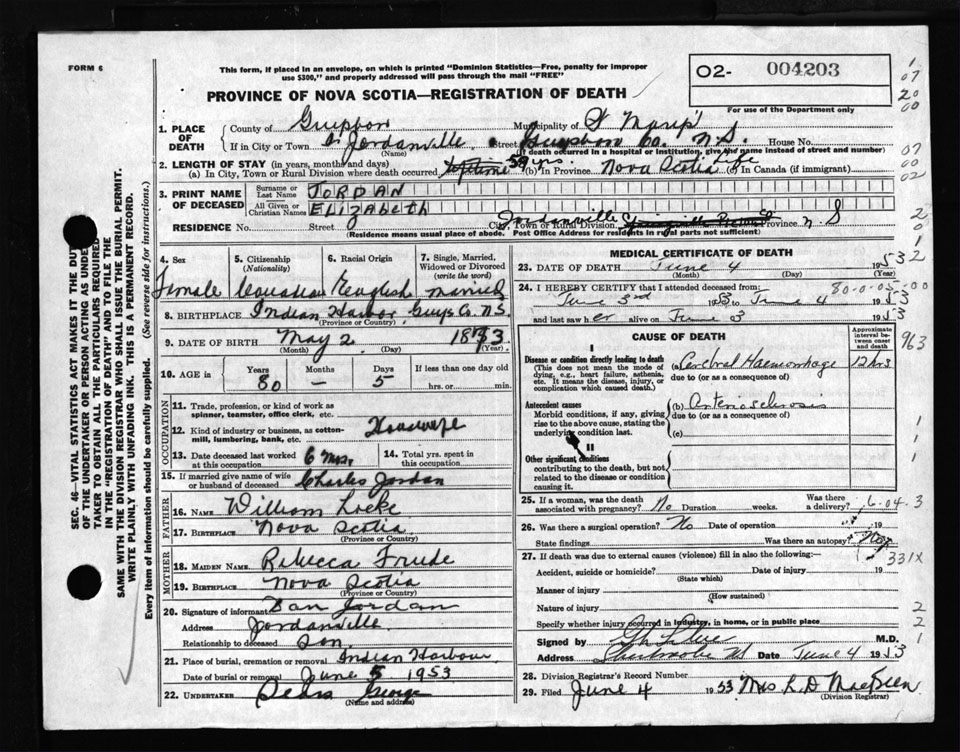 FORM 6
This form, if placed in an envelope, on which is printed "Dominion Statistics—Free, penalty for improper
use $300," and properly addressed will pass through the mail "FREE"
PROVINCE OF NOVA SCOTIA—REGISTRATION OF DEATH
02- 004203
For use of the Department only
1. PLACE OF DEATH
County of Municipality of
If in City or Town Jordanville Street Co. N.S. House No.
(Name) (If death occurred in a hospital or institution, give the name instead of street and number)
2. LENGTH OF STAY (in years, months and days)
(a) In City, Town or Rural Division where death occurred, 59 yrs. (b) In Province Nova Scotia Life (c) In Canada (if immigrant)
3. PRINT NAME OF DECEASED
Surname or Last Name JORDAN
All Given or Christian Names ELIZABETH
RESIDENCE No. Street Jordanville City, Town or Rural Division, Province N.S
(Residence means usual place of abode. Post Office Address for residents in rural parts not sufficient)
4. Sex
Female
5. Citizenship
(Nationality)
Canadian
6. Racial Origin
English
7. Single, Married,
Widowed or Divorced
(write the word)
married
8. BIRTHPLACE Indian Harbor Guys Co. N.S.
(Province or Country)
9. DATE OF BIRTH May 2 1873
(Month) (Day) (Year)
10. AGE in
Years Months Days If less than one day
80 — 5 hrs. or min.
OCCUPATION
11. Trade, profession, or kind of work as
spinner, teamster, office clerk, etc.
12. Kind of industry or business, as cotton-
mill, lumbering, bank, etc. Housewife
13. Date deceased last worked
at this occupation 6 mos.
14. Total yrs. spent in
this occupation
15. If married give name of wife
or husband of deceased Charles Jordan
FATHER
16. NAME William Locke
17. BIRTHPLACE Nova Scotia
(Province or Country)
MOTHER
18. MAIDEN NAME Rebecca
19. BIRTHPLACE Nova Scotia
(Province or Country)
20. Signature of informant Dan Jordan
Address Jordanville
Relationship to deceased Son
21. Place of burial, cremation or removal Indian Harbour
Date of burial or removal June 5 1953
22. UNDERTAKER George
(Name and address)
MEDICAL CERTIFICATE OF DEATH
23. DATE OF DEATH June 4 1953
(Month) (Day) (Year)
24. I HEREBY CERTIFY that I attended deceased from:
June 3rd 1953 to June 4 1953
and last saw her alive on June 3 1953
CAUSE OF DEATH
Approximate interval between onset and death
I
Disease or condition directly leading to death
(This does not mean the mode of
dying, e.g., heart failure, asthenia,
etc. It means the disease, injury, or
complication which caused death.)
(a) Cerebral Haemorrhage 12 hrs
due to (or as a consequence of)
Antecedent causes
Morbid conditions, if any, giving
rise to the above cause, stating the
underlying condition last.
(b) Arteriosclerosis
due to (or as a consequence of)
(c)
II
Other significant conditions
contributing to the death, but not
related to the disease or condition
causing it.
25. If a woman, was the death
associated with pregnancy? No Duration weeks. Was there
a delivery?
26. Was there surgical operation? No Date of operation 19
State findings Was there an autopsy? No
27. If death was due to external causes (violence) fill in also the following:—
Accident, suicide or homicide? Date of injury 19
(State which)
Manner of injury
(How sustained)
Nature of injury
Specify whether injury occurred in industry, in home, or in public place
Signed by M.D.
Address Sherbrooke NS Date June 4 1953
28. Division Registrar's Record Number
29. Filed June 4 1953 Mrs R D
(Division Registrar)
SEC. 46—VITAL STATISTICS ACT MAKES IT THE DUTY
OF THE UNDERTAKER OR PERSON ACTING AS UNDER-
TAKER TO OBTAIN ALL THE PARTICULARS REQUIRED
IN THE "REGISTRATION OF DEATH" AND TO FILE THE
SAME WITH THE DIVISION REGISTRAR WHO SHALL ISSUE THE BURIAL PERMIT.
WRITE PLAINLY WITH UNFADING INK. THIS IS A PERMANENT RECORD.
Every item of information should be carefully supplied. (See reverse side for instructions.)